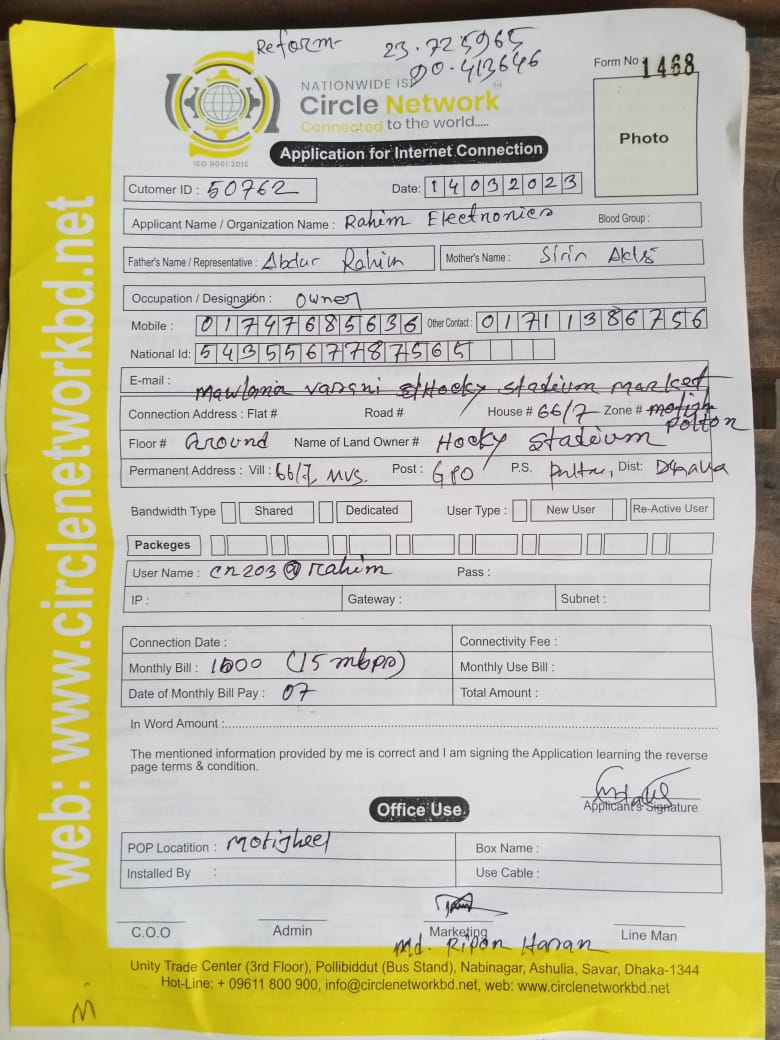 Reform
23.725965
90.413646
Form No 1468
NATIONWIDE ISP
Circle Network
Connected to the world.....
ISO 9001:2015
Photo
Application for Internet Connection
Cutomer ID : 50762 Date: 14032023
Applicant Name / Organization Name : Rahim Electronics Blood Group :
Father's Name / Representative : Abdur Rahim Mother's Name : Sirin
Occupation / Designation : owner
Mobile : 01747685636 Other Contact : 01711386756
National Id: 5435567787565
E-mail :
Mawlana Vasani Hocky Stadium Marked
Connection Address : Flat # Road # House # 66/7 Zone #
Polton
Floor # Around Name of Land Owner # Hocky Stadium
Permanent Address : Vill : 66/7, MVS. Post : GPO P.S. Dist: Dhaka
Bandwidth Type Shared Dedicated User Type : New User Re-Active User
Packeges
User Name : cn203@rahim Pass :
IP : Gateway : Subnet :
Connection Date : Connectivity Fee :
Monthly Bill : 1500 (15 mbps) Monthly Use Bill :
Date of Monthly Bill Pay : 07 Total Amount :
In Word Amount :
The mentioned information provided by me is correct and I am signing the Application learning the reverse
page terms & condition.
Applicant's Signature
Office Use.
POP Locatition : Motijheel Box Name :
Installed By : Use Cable :
C.O.O Admin Marketing Line Man
Md. Ripon Hasan
Unity Trade Center (3rd Floor), Pollibiddut (Bus Stand), Nabinagar, Ashulia, Savar, Dhaka-1344
Hot-Line: + 09611 800 900, info@circlenetworkbd.net, web: www.circlenetworkbd.net
web: www.circlenetworkbd.net